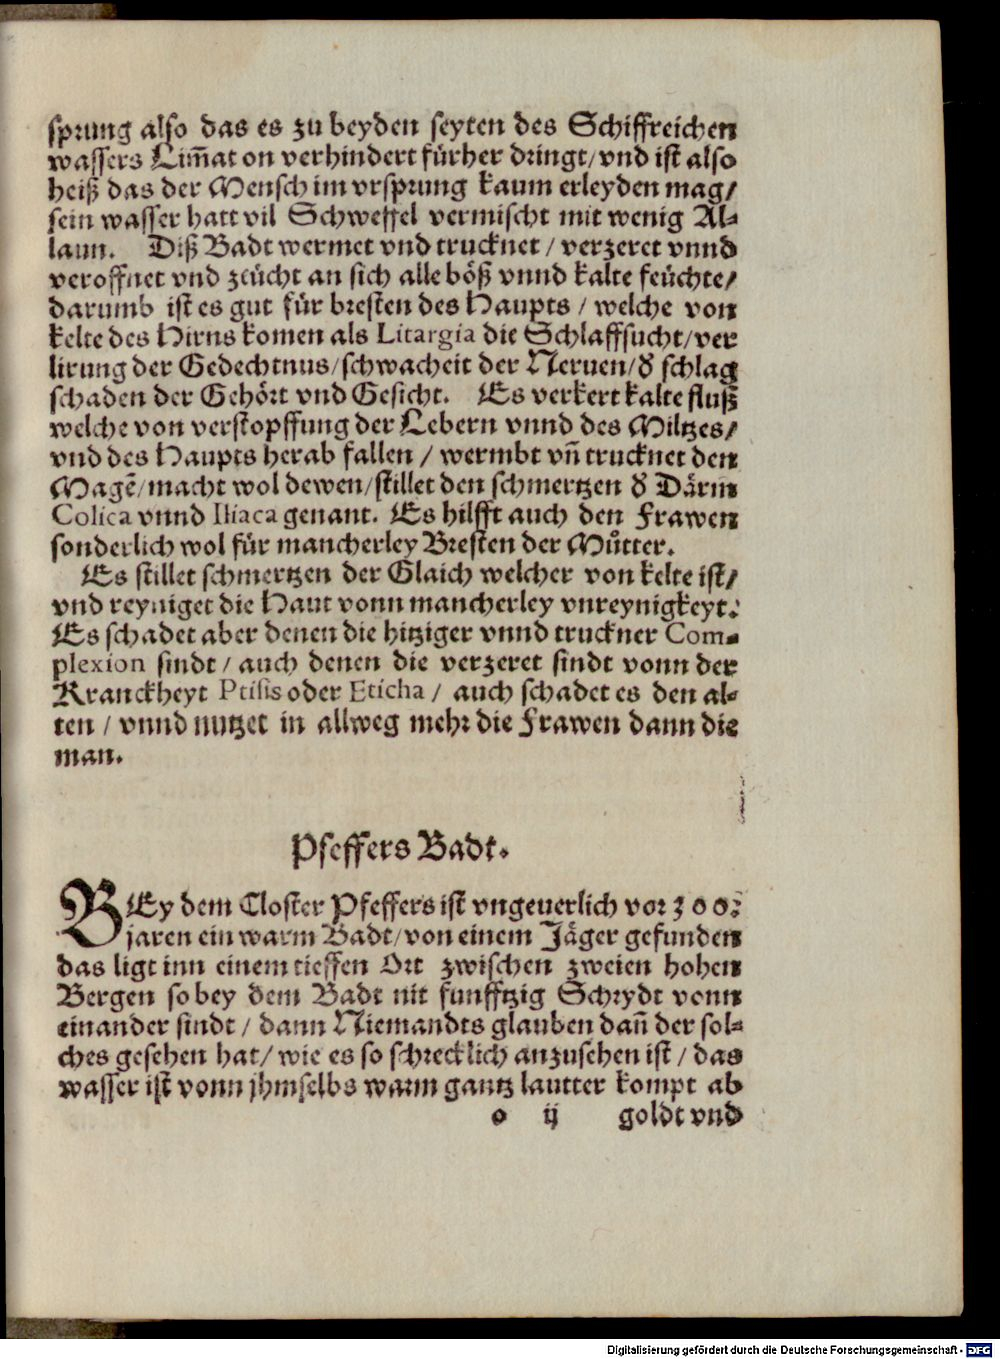 sprung also das es zu beyden seyten des Schiffreichen
wassers Lim̄at on verhindert fürher dringt/vnd ist also
heiß das der Mensch im vrsprung kaum erleyden mag/
sein wasser hatt vil Schweffel vermischt mit wenig Al-
laun. Diß Badt wermet vnd trucknet / verzeret vnnd
veroffnet vnd zeücht an sich alle böß vnnd kalte feüchte/
darumb ist es gut für bresten des Haupts / welche von
kelte des Hirns komen als Litargia die Schlaffsucht/ver
lirung der Gedechtnus/schwacheit der Neruen/d̕ schlag
schaden der Gehört vnd Gesicht. Es verkert kalte fluß
welche von verstopffung der Lebern vnnd des Miltzes/
vnd des Haupts herab fallen / wermbt vn̄ trucknet den
Magē/macht wol dewen/stillet den schmertzen d̕ Därm
Colica vnnd Iliaca genant. Es hilfft auch den Frawen
sonderlich wol für mancherley Bresten der Můtter.
Es stillet schmertzen der Glaich welcher von kelte ist/
vnd reyniget die Haut vonn mancherley vnreynigkeyt.
Es schadet aber denen die hitziger vnnd truckner Com-
plexion sindt / auch denen die verzeret sindt vonn der
Kranckheyt Ptisis oder Eticha / auch schadet es den al-
ten / vnnd nutzet in allweg mehr die Frawen dann die
man.
Pfeffers Badt.
BEy dem Closter Pfeffers ist vngeuerlich vor 300.
jaren ein warm Badt/von einem Jäger gefunden
das ligt inn einem tieffen Ort zwischen zweien hohen
Bergen so bey dem Badt nit funfftzig Schrydt vonn
einander sindt / dann Niemandts glauben dan̄ der sol-
ches gesehen hat/ wie es so schrecklich anzusehen ist / das
wasser ist vonn jhmselbs warm gantz lautter kompt ab
o ij goldt vnd
Digitalisierung gefördert durch die Deutsche Forschungsgemeinschaft - DFG